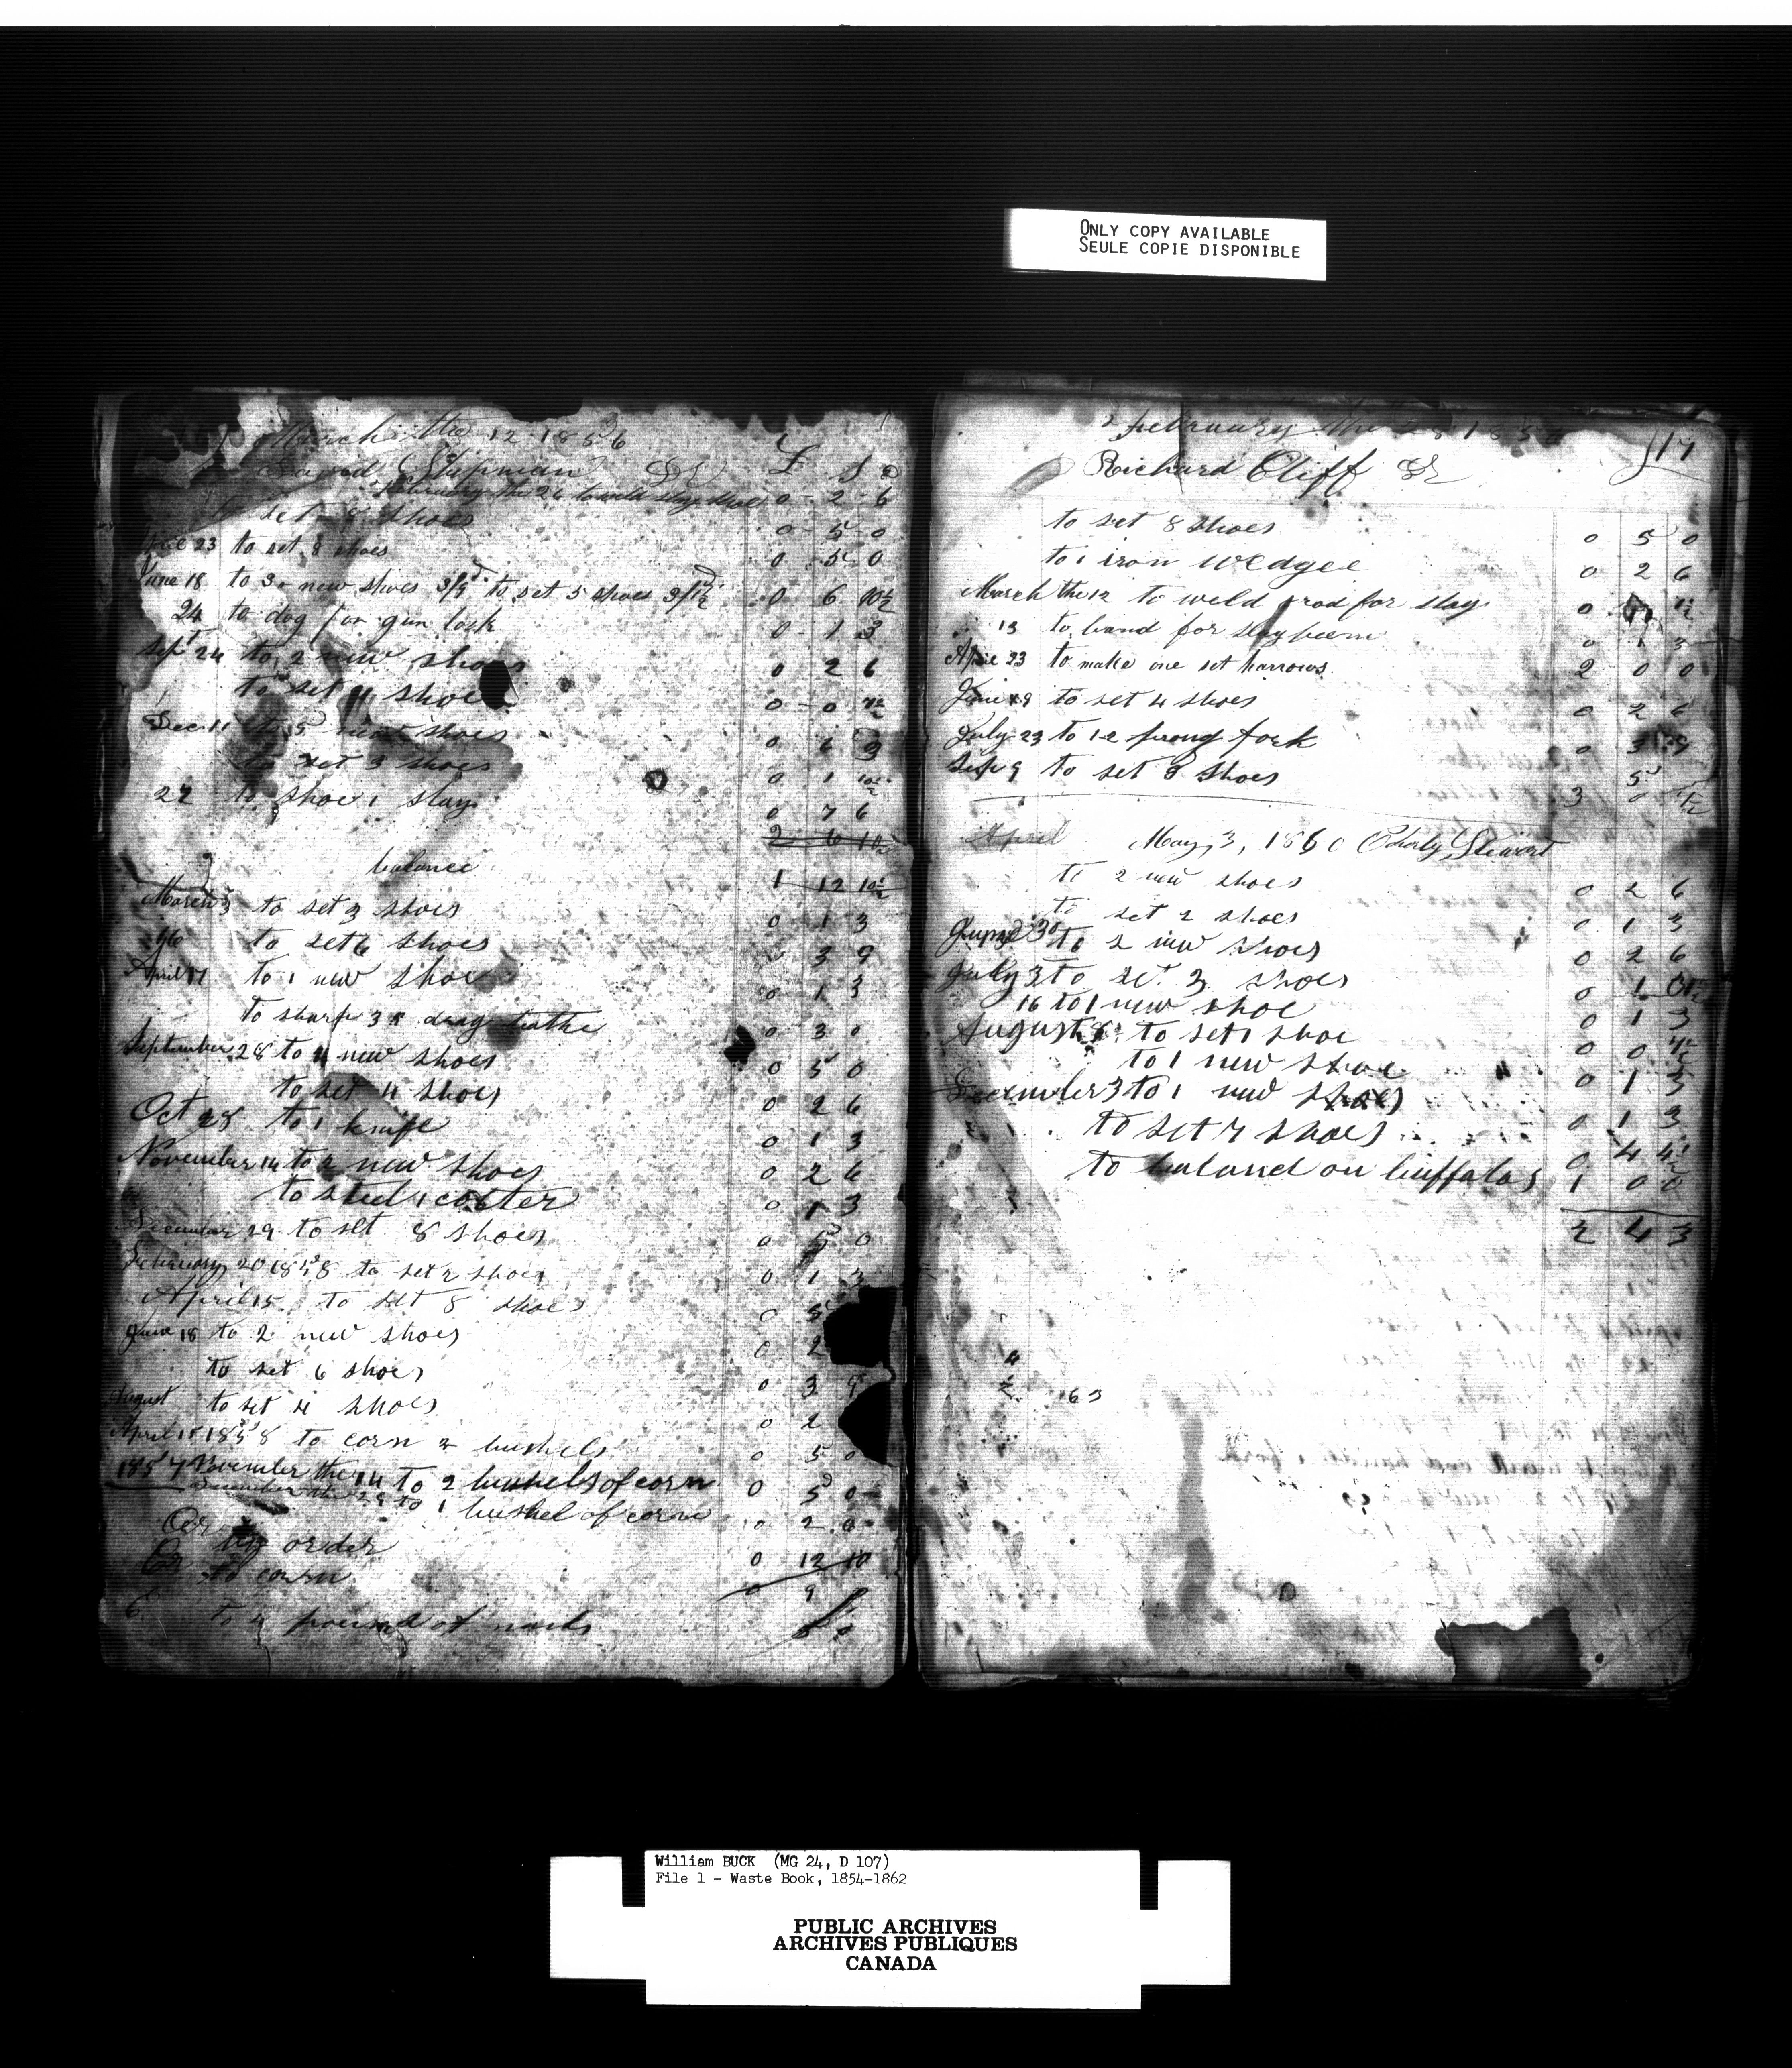 ONLY COPY AVAILABLE
SEULE COPIE DISPONIBLE
March the 12 1856
Shipman Dr £ S D
February the 26 slay shoe 0 - 2 - 6
set 8 shoes 0 - 5 - 0
23 to set 8 shoes 0 - 5 - 0
June 18 to 3 new shoes 3/9 to set 5 shoes 3/1½ 0 6 10½
24 to dog for gun lock 0 - 1 3
Sept 24 to 2 new shoes 0 2 6
to set 4 shoes 0 - 0 7½
Dec 11 to 5 new shoes 0 6 3
to set 3 shoes 0 1 10½
27 to shoe 1 slay 0 7 6
2 6 10½
balance 1 12 10½
March 3 to set 3 shoes 0 1 3
to set 6 shoes 3 9
April 17 to 1 new shoe 0 1 3
to sharp 35 drag teathe 0 3 0
September 28 to 4 new shoes 0 5 0
to set 4 shoes 0 2 6
Oct 28 to 1 knife 0 1 3
November 14 to 2 new shoes 0 2 6
to steel 1 colter 0 1 3
December 29 to set 8 shoes 0 5 0
February 20 1858 to set 2 shoes 0 1 3
April 15 to set 8 shoes 0 5
June 18 to 2 new shoes 0 2
to set 6 shoes 0 3 9
August to set 4 shoes 0 2
April 15 1858 to corn 2 bushels 0 5 0
1857 November the 14 to 2 bushels of corn 0 5 0
December the 29 to 1 bushel of corn 0 2 6
Cr by order 0 12 10
Cr to corn 0 9
to 4 pound of nails
February the 28 1856 17
Richard Cliff Dr
to set 8 shoes 0 5 0
to 1 iron wedgee 0 2 6
March the 12 to weld rod for slay 0 1½
13 to band for slay beem 0 1 3
April 23 to make one set harrows 2 0 0
June 19 to set 4 shoes 0 2 6
July 23 to 1 2 prong fork 0 3 9
Sep 9 to set 8 shoes 5
3 0 1½
April May 3, 1860 Stewart
to 2 new shoes 0 2 6
to set 2 shoes 0 1 3
June 30 to 2 new shoes 0 2 6
July 3 to set 3 shoes 0 1
16 to 1 new shoe 0 1 3
August 8 to set 1 shoe 0 0 7½
to 1 new shoe 0 1 3
December 3 to 1 new shoes 0 1 3
to set 7 shoes 0 4 4½
to baland on buffalos 1 0 0
2 4 3
63
William BUCK (MG 24, D 107)
File 1 - Waste Book, 1854-1862
PUBLIC ARCHIVES
ARCHIVES PUBLIQUES
CANADA